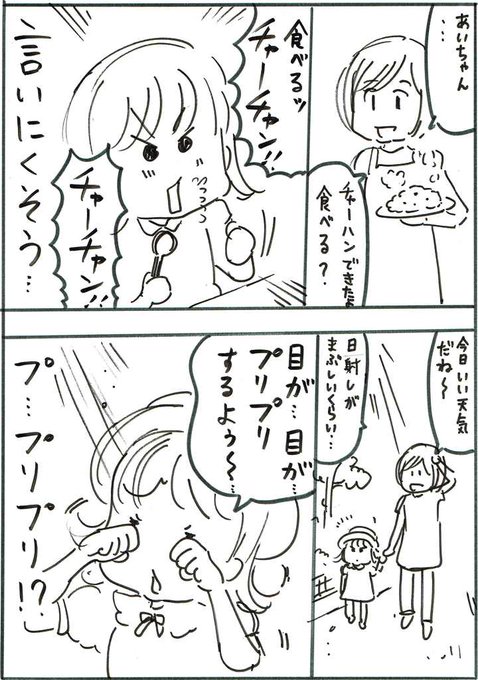 あいちゃん
…
チャーハンできたよ
食べる?
食べるッ
チャーチャン!!
チャーチャン!!
言いにくそう…
今日いい天気
だね〜
日射しが
まぶしいくらい…
目が…目が…
プリプリ
するよぅ〜…
プ…プリプリ!?